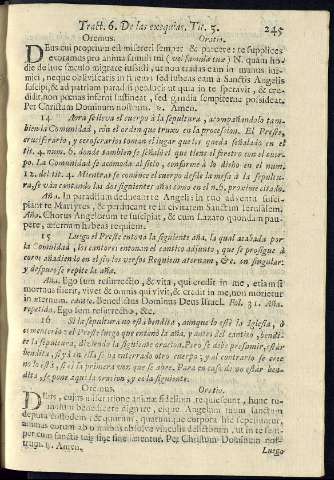 Tract. 6. De las exequias, Tit. 5. 245
Oremus. Oratio.
Deus cui proprium est misereri semper & parcere: te supplices
exoramus pro anima famuli tui (vel famulæ tuæ) N. quam ho-
die de hoc sæculo migrare jussisti, ut non tradas eam in manus ini-
mici, neque obliviscaris in finem, sed jubeas eam à Sanctis Angelis
suscipi, & ad patriam paradisi perduci, ut quia in te speravit, & cre-
didit, non pœnas inferni sustineat, sed gaudia sempiterna possideat.
Per Christum Dominum nostrum. ℟. Amen.
14 Aora se lleva el cuerpo à la sepultura, acompañandolo tam-
bien la Comunidad, con el orden que truxo en la procesion. El Preste,
cruciferario, y ceroferarios toman el lugar que les queda señalado en el
tit. 4. num. 6. donde tambien se señalò el que tiene el feretro con el cuer-
po. La Comunidad se acomoda al sitio, conforme à lo dicho en el num.
12. del tit. 4. Mientras se conduce el cuerpo desde la mesa à la sepultu-
ra, se vàn cantando las dos siguientes añas como en el n. 6. proxime citado.
Aña. In paradisum deducant te Angeli: in tuo adventu susci-
piant te Martyres, & perducant te in civitatem sanctam Ierusalem.
Aña. Chorus Angelorum te suscipiat, & cum Lazaro quondam pau-
pere, æternam habeas requiem.
15 Luego el Preste entona la siguiente aña, la qual acabada por
la Comunidad, los cantores entonan el cantico adjunto, que se prosigue à
coros añadiendo en el fin los versos Requiem æternam, &c. en singular:
y despues se repite la aña.
Aña. Ego sum resurrectio, & vita, qui credit in me, etiam si
mortuus fuerit, vivet & omnis qui vivit, & credit in me, non morietur
in æternum. cantic. Benedictus Dominus Deus Israel. Fol. 31. Aña.
repetida. Ego sum resurrectio, &c.
16 Si la sepultura no està bendita, aunque lo estè la Iglesia, ò
cimenterio el Preste luego que entonò la aña, y antes del cantico, bendi-
te la sepultura, diziendo la siguiente oracion. Pero se debe presumir, estàr
bendita, si yà en ella se ha enterrado otro cuerpo; y al contrario se cree
no lo està, si es la primera vez que se abre. Para en caso de no estàr ben-
dita, se pone aqui la oracion, y es la siguiente.
Oremus. Oratio.
Deus, cujus miseratione animæ fidelium requiescunt, hunc tu-
mulum benedicere dignare, eique Angelum tuum sanctum
deputa custodem: & quorum, quarumque corpora hic sepeliuntur,
animas eorum ab omnibus absolve vinculis delictorum, ut in te sem-
per cum sanctis tuis sine fine lætentur. Per Christum Dominum nos-
trum. ℟. Amen. Luego